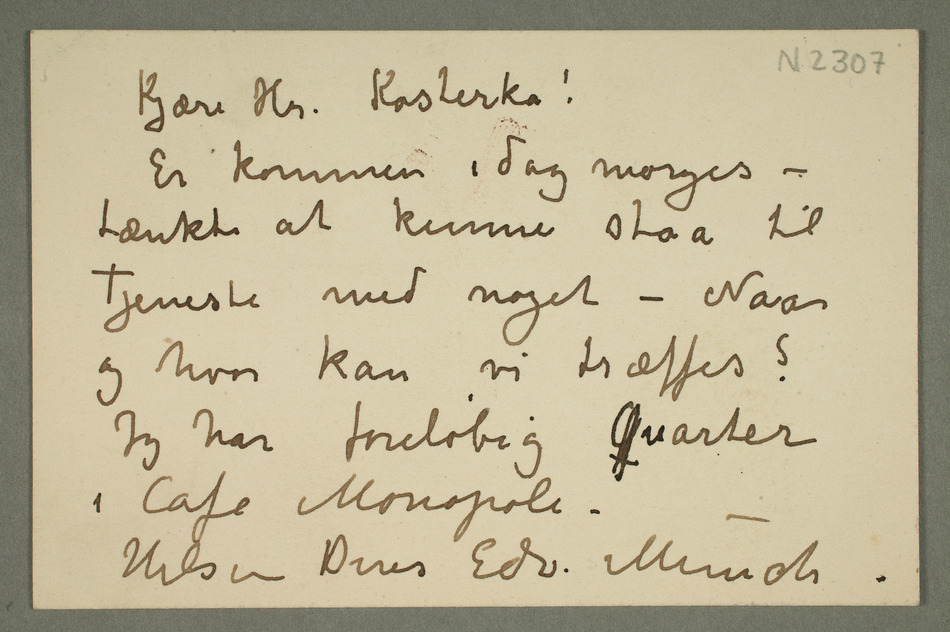 N 2307
Kjære Hr. Kosterka!
Er kommen idag morges –
tænkte at kunne staa til
Tjeneste med noget – Naar
og hvor kan vi træffes?
Jg har foreløbig Quarter
i Cafe Monopole.
Hilsen Deres Edv. Munch.